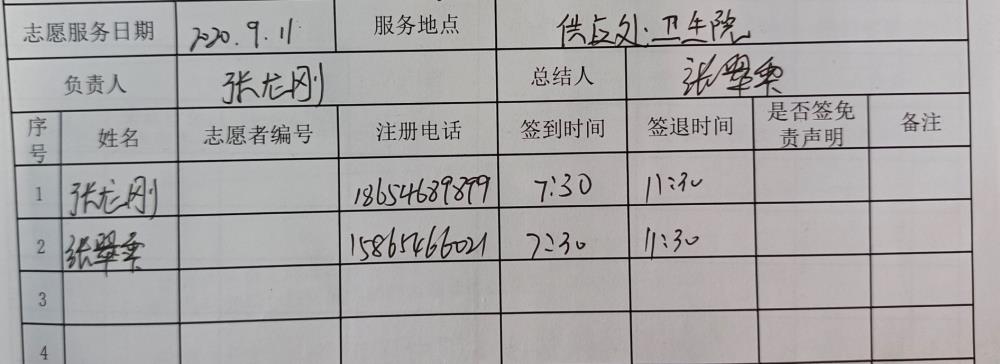 志愿服务日期 2020.9.11 服务地点 供应处:卫生院
负责人 张龙刚 总结人 张翠
序号 姓名 志愿者编号 注册电话 签到时间 签退时间 是否签免责声明 备注
1 张龙刚 18654689899 7:30 11:30
2 张翠 15865466021 7:30 11:30
3
4